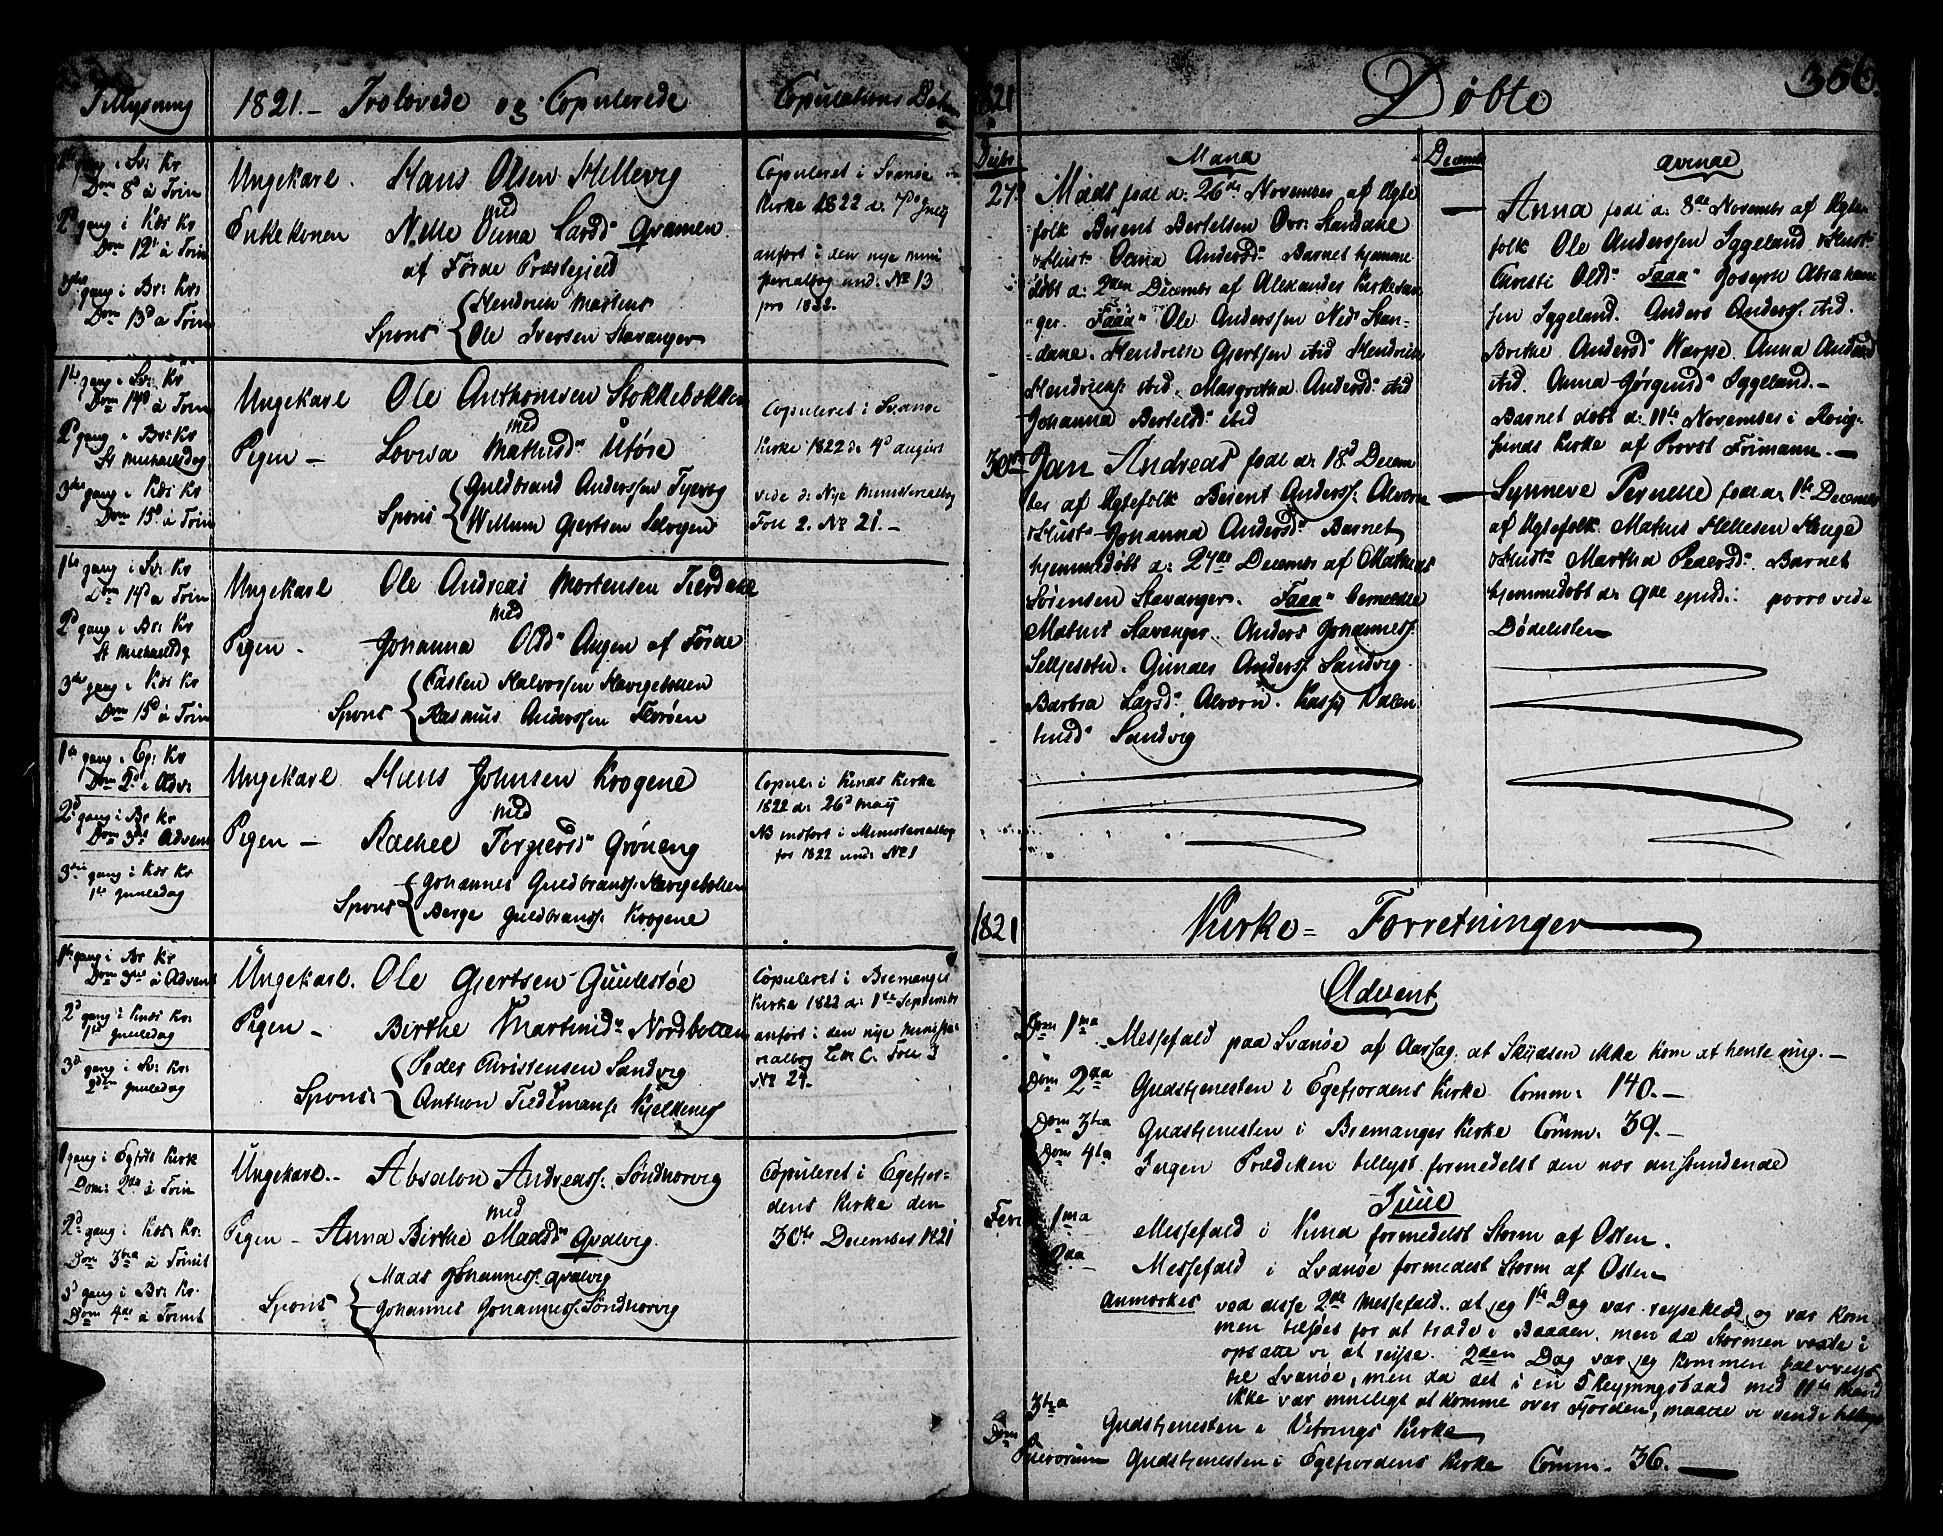 Tillysning
1821.- Trolovede og Copulerede
Copulations Datum
1ste gang i Sv: Kr
Dom 8d à Trin
2d gang i Kds Kr
Dom 12te à Trin
3die gang i Br: Kr:
Dom 13d à Trin
Ungekarl. Hans Olsen Hillevig
med
Enkekonen Nille Onna Larsd: Qvamen
af Förde Præstegield
Spons Hendrich Martens
Ole Iversen Stavanger
Copuleret i Svanöe
Kirke 1822 d:
anfört i den nye mini
sterialbog und: No 13
pro 1822.
1te gang i Sv: Kr
Dom 14d à Trin
2d gang i Br: Kr
St Michaelsdag
3die gang i Kds Kr
Dom 15d à Trin
Ungekarl Ole Anthonsen Stokkebekken
med
Pigen - Lovisa Mathisd: Utföre
Spons Guldbrand Anderssen Tyevig
Willum Giertsen Selvogen
Copuleret i Svanöe
Kirke 1822 d: 4d august
vide d: Nye Ministerialbog
Fol 2. No 21.-
1te gang i Sv: Kr
Dom 14d à Trin
2d gang i Br: Kr
St Michaelsdg
3die gang i Kds Kr
Dom 15d à Trin
Ungekarl Ole Andreas Mortensen
med
Pigen - Johanna Olsd: Angen af Förde
Spons Casten Halvorssen Havigebotten
Rasmus Anderssen Floröen
1te gang i Eg: Kr
Dom 2d i Adv:
2d gang i Br Kr
Dom 3die Advent
3die gang i Kds Kr
1te Juuledag
Ungekarl Hans Johnsen Krogene
med
Pigen - Rachel Torgiersd: Gröneng
Spons Johannes Guldbranss: Havigebotten
Børge Guldbranss: Krogene
Copule: i Kinds Kirke
1822 d: 26d Maij
NB indfört i Ministerialbog
for 1822 und: No 1
1te gang i Br Kr
Dom 3die à Advent
2d gang i Kinds Kr:
1te Juuledag
3d gang i Sv: Kr:
2den Juuledag
Ungekarl. Ole Giertsen Gulestöe
Pigen - Birthe Martinid: Nordbotten
Spons: Peder Christensen Sandvig
Anthon Tiedemans:
Copuleret i Bremanger
Kirke 1822 d: 1ste September
anfört i den nye ministe-
rialbog Litr C. Fol 3
No 24.
1 gang i Egfds Kirk
Dom: 2da à Trin
2d gang i Kds: Kr:
Dom 3tia à Trinit
3d gang i Br: Kr.
Dom 4de à Trinit
Ungekarl.- Absalon Andreass: Söndnorvig
med
Pigen - Anna Birthe Madsd: Qvalvig.
Spons Mads Johanness: Qvalvig
Johannes Johanness: Söndnorvig
Copuleret i Egefjor-
dens Kirke den
30te December 1821
1821
Döbte
356.
Decbr
Mana
27d
Mads föde d: 26de November af Ægte
folk Berent Bertelsen Övr: Standane
& Hust: Onna Andersd: Barnet hjemme
döbt d: 2den December af Alexander Kirkesan
ger. Fadd: Ole Anderssen Ned Stan-
dane. Hendrich Giertsen ibid Hendrich
Hendrichs: ibid. Margretha Andersd: ibid
Johanna Bertelsd: ibid
30te
Jan Andreas föde d: 18d Decem
ber af Ægtefolk Berent Anderss: Alvøra
& Hust: Johanna Andersd: Barnet
hjemmedöbt d: 27de December af Mathias
Sörensen Stavanger. Fadd: bemeldte
Mathis Stavanger. Anders Johanness:
Seljesetn. Gunder Anderss: Sandvig
Barbra Larsd: Alvøra.
Sandvig
Decemb
qvinde
Anna föde d: 8de Novembr af Ægte
folk Ole Anderssen Iggeland & Hust:
Christi Olsd: Fadd: Joseph Abraham
sen Iggeland. Anders Anderss: ibid.
Birthe Andersd Warpe. Anna Andersd
ibid. Anna Jörgensd: Iggeland.-
Barnet döbt d: 11te November i
Kirke af Provst Frimann.-
Synneve Pernelle föde d: 1te December
af Ægtefolk Mathis Hellesen Hauge
& Hust: Martha Pedersd: Barnet
hjemmedöbt d: 9de ejusd: porro vide
Dödelisten
1821
Kirke-Forretninger
Advent
Dom 1ma Messefald paa Svanöe af Aarsag, at Skydsen ikke kom at hente mig.-
Dom 2da Gudstjenesten i Egefjordens Kirke Comm: 140.-
Dom 3tia Gudstjenesten i Bremanger Kirke Comm. 39.-
Dom 4ta Ingen Prædiken tillyst formedelst den nær anstundende
Juul
Feria 1ma Messefald i Kind formedelst Storm af Osten.
2da Messefald i Svanöe formedelst Storm af Osten
Anmærkes ved disse 2de Messefald. at jeg 1te Dag var reiseklæd og var kom
men til söes for at træde i Baaden, men da Stormen vaxte i
opsatte vi at reise. 2den Dag var jeg kommen halvveis
til Svanöe, men da det i en Skeysningsbaad med 11te Mand
ikke var mueligt at komme over Fjorden, maatte vi vende tilbage
3tia Gudstjenesten i Vebrings Kirke
Dom Puerorum Gudstjenesten i Egefjordens Kirke Comm. 36.-